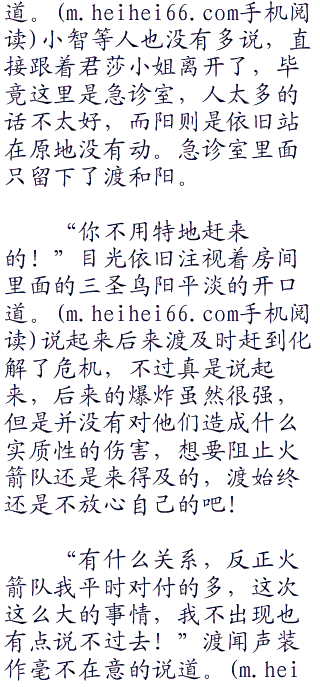 道。(m.heihei66.com手机阅
读)小智等人也没有多说，直
接跟着君莎小姐离开了，毕
竟这里是急诊室，人太多的
话不太好，而阳则是依旧站
在原地没有动。急诊室里面
只留下了渡和阳。
“你不用特地赶来
的！”目光依旧注视着房间
里面的三圣鸟阳平淡的开口
道。(m.heihei66.com手机阅
读)说起来后来渡及时赶到化
解了危机，不过真是说起
来，后来的爆炸虽然很强，
但是并没有对他们造成什么
实质性的伤害，想要阻止火
箭队还是来得及的，渡始终
还是不放心自己的吧！
“有什么关系，反正火
箭队我平时对付的多，这次
这么大的事情，我不出现也
有点说不过去！”渡闻声装
作毫不在意的说道。(m.hei